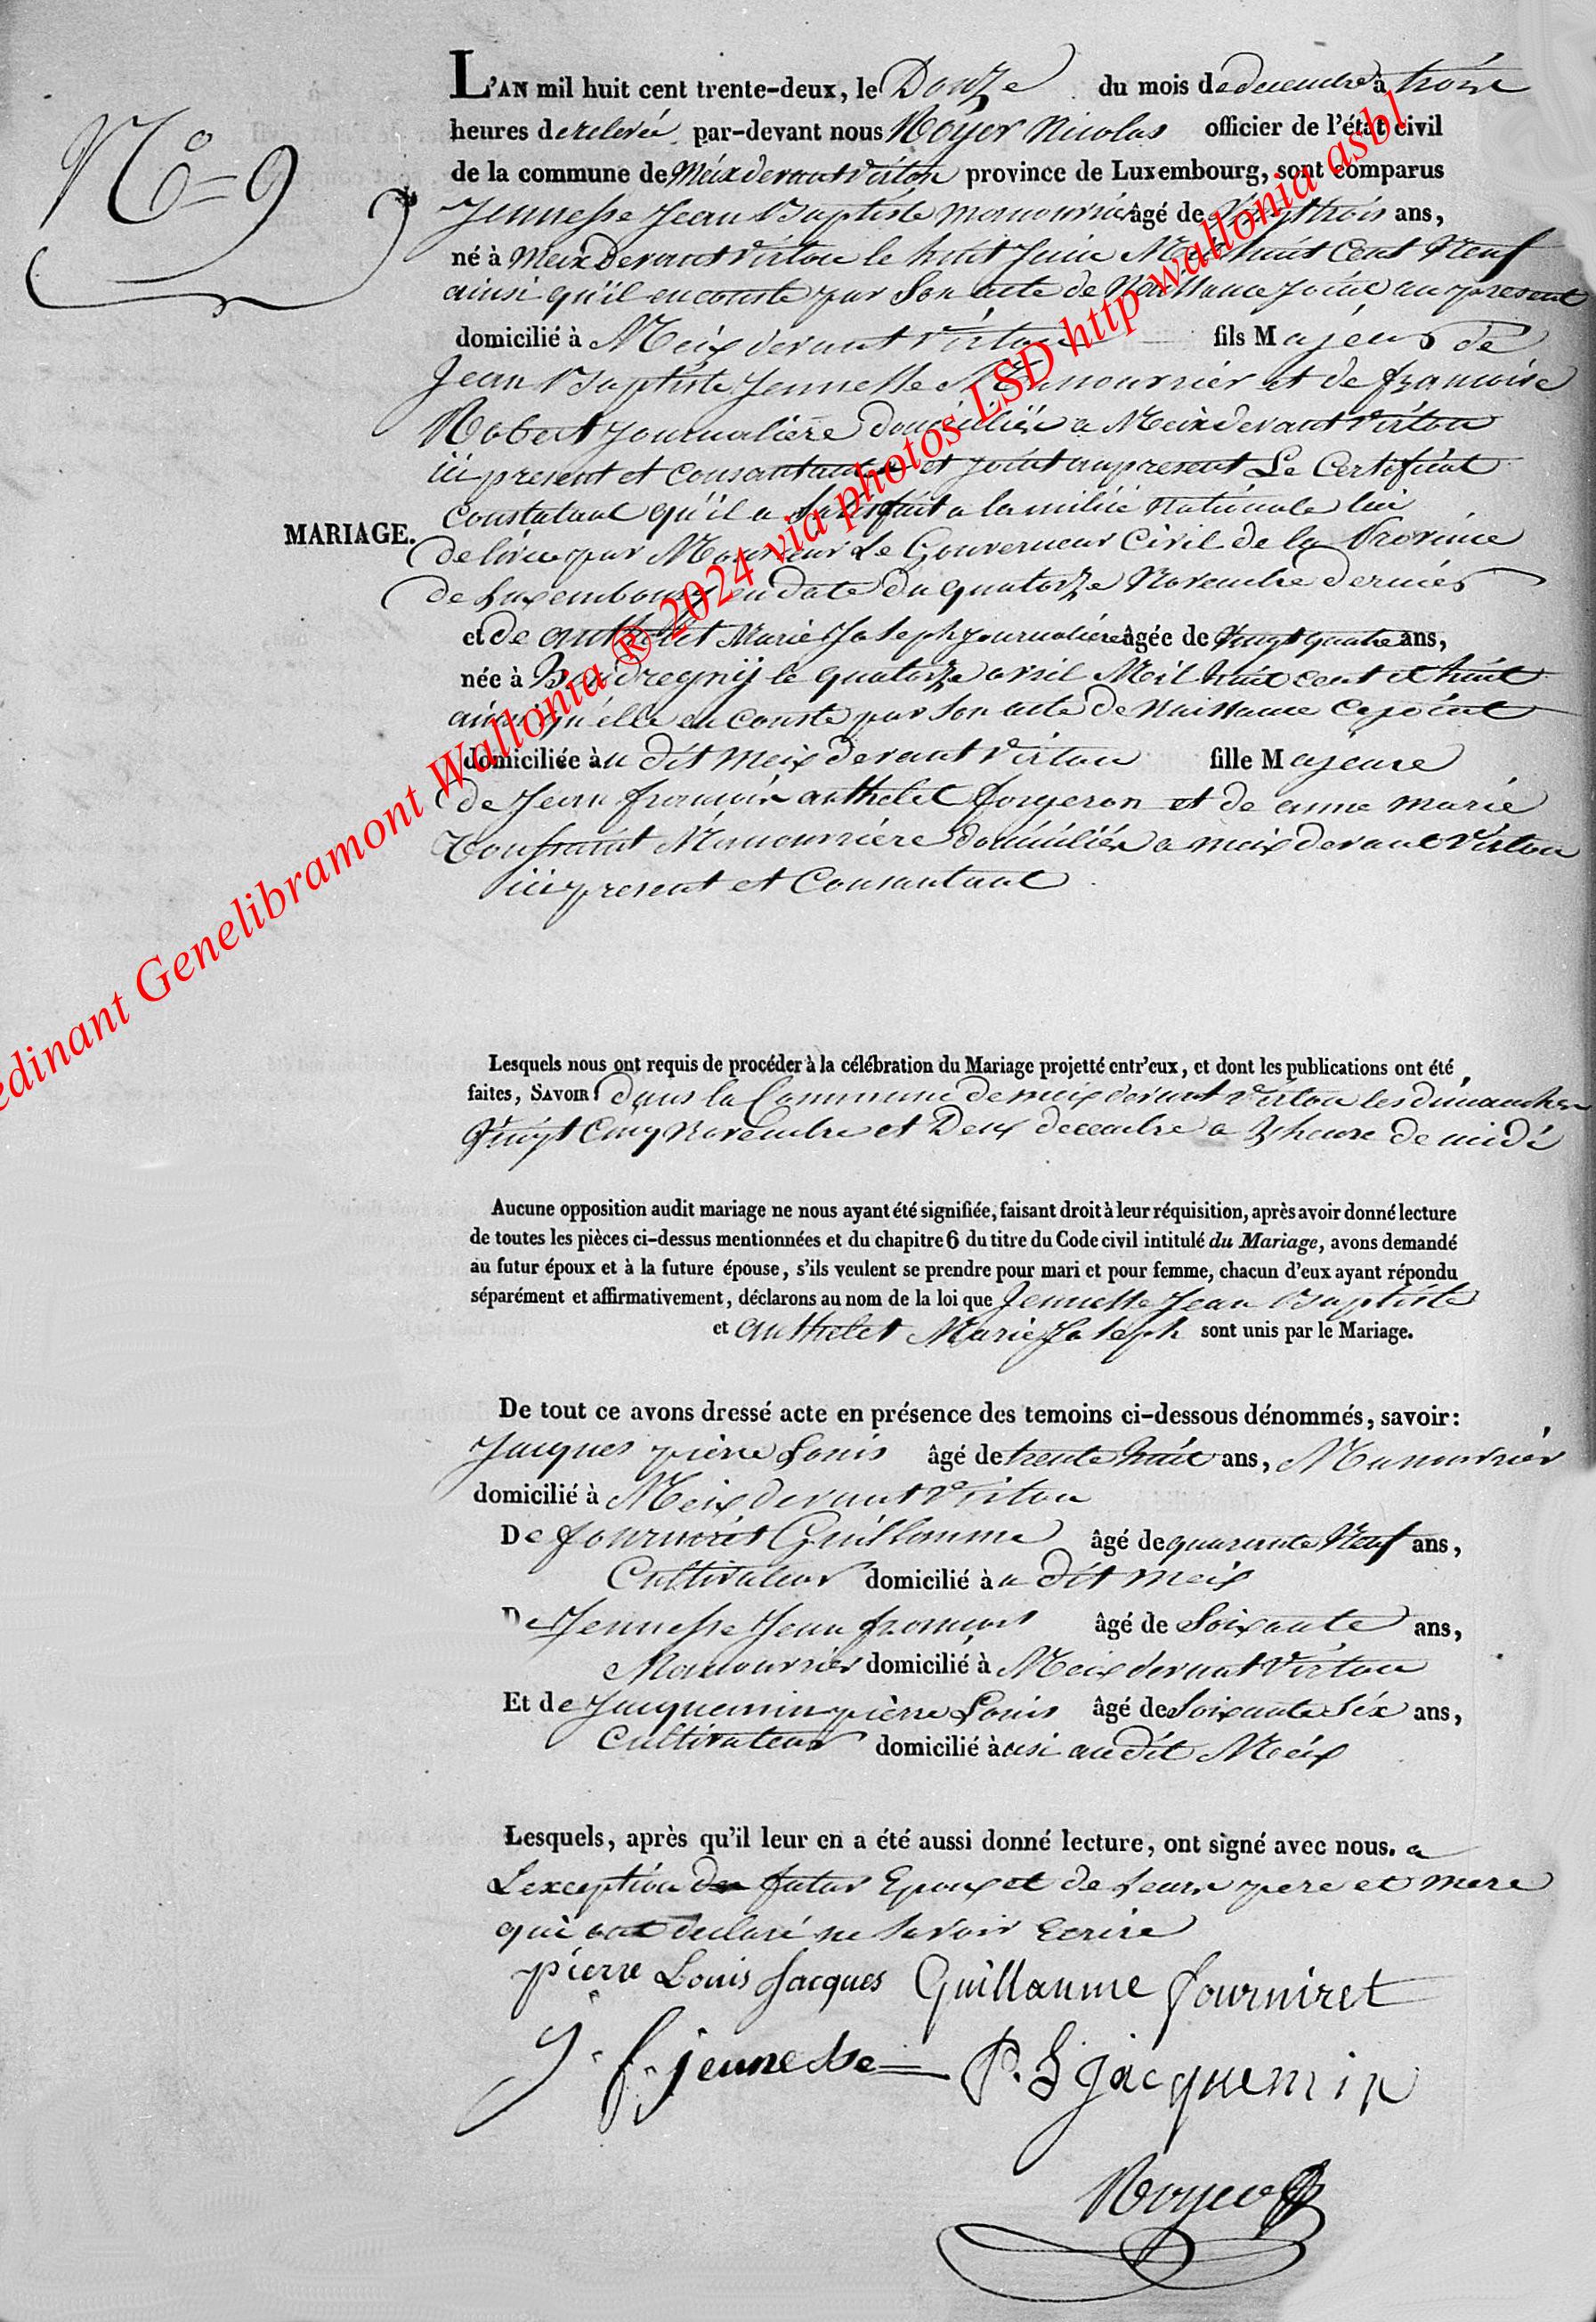 L'AN mil huit cent trente-deux, le Douze du mois de decembre à trois
N° 9
heures de relevée par-devant nous Royer Nicolas officier de l'état civil
de la commune de Meix devant Virton province de Luxembourg, sont comparus
Jeunesse Jean Baptiste manouvrier âgé de vingt trois ans,
né à Meix Devant Virton le huit Juin Mil huit Cent Neuf
ainsi qu'il en conste par Son acte de Naissance joint au present
domicilié à Meix devant Virton fils Majeur de
Jean Baptiste Jeunesse Manouvrier et de françoise
Robert Journalière domiciliés a Meix devant Virton
ici present et consantant et joint au present Le Certificat
Constatant qu'il a Satisfait a la milice Nationale lui
MARIAGE.
delivré par Monsieur Le Gouverneur Civil de la Province
de Luxembourg en date du quatorze Novembre dernier
et de authelet Marie Joseph journalière âgée de Vingt quatre ans,
née à Baudregnij le quatorze avril Mil huit cent et huit
ainsi qu'elle en conste par Son acte de Naissance ci joint
domiciliée à u dit Meix devant Virton fille Majeure
de Jean françois authelet forgeron et de anne marie
Toussaint Manouvriere domiciliés a meix devant Virton
ici present et Consantant
Lesquels nous ont requis de procéder à la célébration du Mariage projetté entr'eux, et dont les publications ont été
faites, SAVOIR: dans la Commune de meix devant Virton les dimanches
Vingt Cinq Novembre et Deux decembre a heure de midi
Aucune opposition audit mariage ne nous ayant été signifiée, faisant droit à leur réquisition, après avoir donné lecture
de toutes les pièces ci-dessus mentionnées et du chapitre 6 du titre du Code civil intitulé du Mariage, avons demandé
au futur époux et à la future épouse, s'ils veulent se prendre pour mari et pour femme, chacun d'eux ayant répondu
séparément et affirmativement, déclarons au nom de la loi que Jeunesse Jean Baptiste
et authelet Marie Joseph sont unis par le Mariage.
De tout ce avons dressé acte en présence des temoins ci-dessous dénommés, savoir:
Jacques pierre Louis âgé de trente huit ans, Manouvrier
domicilié à Meix devant Virton
De fourniret Guillaume âgé de quarante Neuf ans,
Cultivateur domicilié à u dit Meix
De Jeunesse Jean françois âgé de Soixante ans,
Manouvrier domicilié à Meix devant Virton
Et de Jacquemin pierre Louis âgé de Soixante Six ans,
Cultivateur domicilié à usi au dit Meix
Lesquels, après qu'il leur en a été aussi donné lecture, ont signé avec nous. a
L'exception du futur Epoux et de Leurs pere et mere
qui ont declaré ne Savoir Ecrire
pierre Louis Jacques Guillaume fourniret
J. f. jeunesse P. L Jacquemin
Royer
edinant Genelibramont Wallonia ® 2024 via photos LSD http wallonia asbl